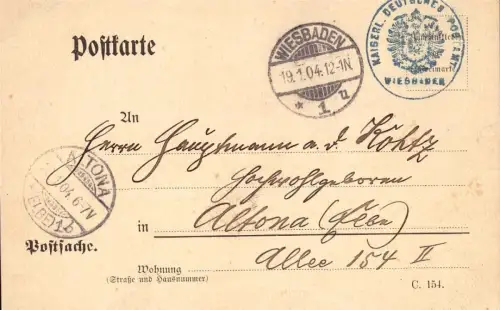 Postkarte
WIESBADEN
19.1.04.12-1N.
* 1 u
KAISERL. DEUTSCHES POSTAMT
WIESBADEN
An
Herrn Hauptmann a. d. Kohtz
Hochwohlgeboren
in Altona (Elbe)
Allee 154 II
ALTONA
04.6-7N
(ELBE) 1
Postsache.
Wohnung
(Straße und Hausnummer)
C. 154.